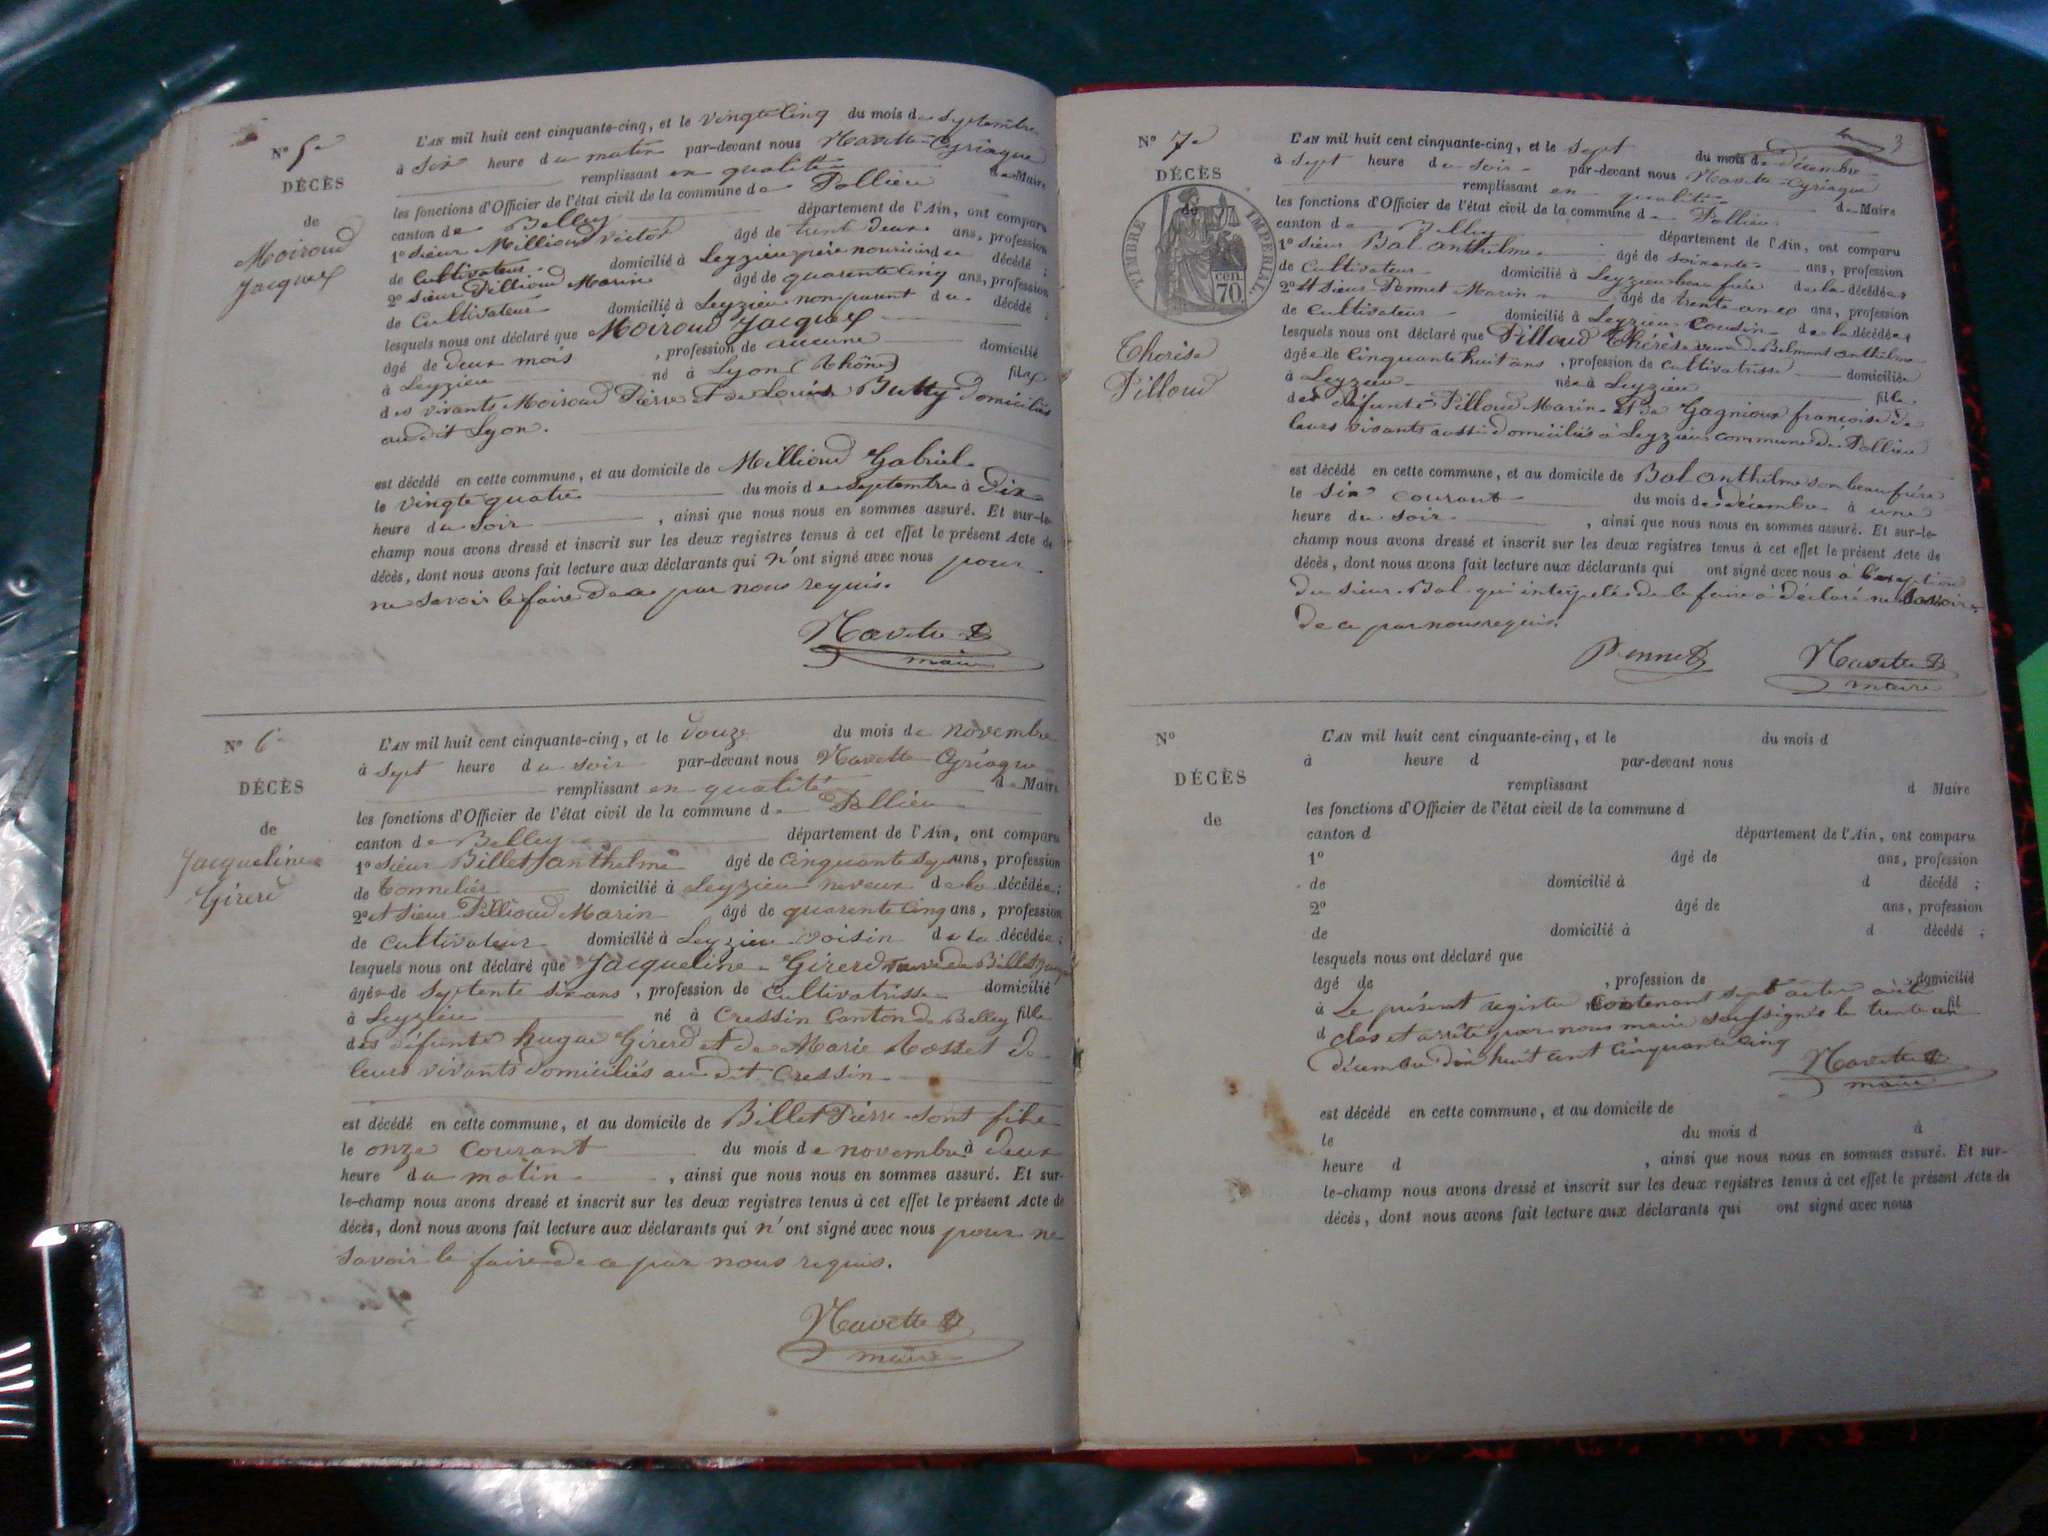 N° 5e
DÉCÈS
de
Moiroud
Jacques
L'AN mil huit cent cinquante-cinq, et le vingt cinq du mois de septembre
à six heure du matin par-devant nous Navette Cyriaque
remplissant en qualité de Maire
les fonctions d'Officier de l'état civil de la commune de Pollieu
canton de Belley département de l'Ain, ont comparu
1° sieur Millioud Victor âgé de trente deux ans, profession
de Cultivateur domicilié à Leyzieu père nouricier du décédé ;
2° sieur Pillioud Marin âgé de quarente cinq ans, profession
de Cultivateur domicilié à Leyzieu non parent du décédé ;
lesquels nous ont déclaré que Moiroud Jacques
âgé de deux mois , profession de aucune domicilié
à Leyzieu né à Lyon (Rhône) fils
des vivants Moiroud Pierre et de Louise Butty domiciliés
au dit Lyon.
est décédé en cette commune, et au domicile de Millioud Gabriel
le vingt quatre du mois de septembre à dix
heure du soir , ainsi que nous nous en sommes assuré. Et sur-le-
champ nous avons dressé et inscrit sur les deux registres tenus à cet effet le présent Acte de
décès, dont nous avons fait lecture aux déclarants qui n'ont signé avec nous pour
ne savoir le faire de ce par nous requis.
Navette
maire
N° 6
DÉCÈS
de
Jacqueline
Girerd
L'AN mil huit cent cinquante-cinq, et le douze du mois de novembre
à sept heure du soir par-devant nous Navette Cyriaque
remplissant en qualité de Maire
les fonctions d'Officier de l'état civil de la commune de Pollieu
canton de Belley département de l'Ain, ont comparu
1° sieur Billet anthelme âgé de cinquante sept ans, profession
de tonnelier domicilié à Leyzieu neveux de la décédée ;
2° et sieur Pillioud Marin âgé de quarente cinq ans, profession
de Cultivateur domicilié à Leyzieu voisin de la décédée ;
lesquels nous ont déclaré que Jacqueline Girerd veuve de Billet
âgée de septente six ans , profession de Cultivatrisse domicilié
à Leyzieu né à Cressin Canton de Belley fille
des défunts hugue Girerd et de Marie Cosset de
leurs vivants domiciliés au dit Cressin
est décédé en cette commune, et au domicile de Billet Pierre sont fils
le onze courant du mois de novembre à deux
heure du matin , ainsi que nous nous en sommes assuré. Et sur-
le-champ nous avons dressé et inscrit sur les deux registres tenus à cet effet le présent Acte de
décès, dont nous avons fait lecture aux déclarants qui n'ont signé avec nous pour ne
savoir le faire de ce par nous requis.
Navette
maire
3
N° 7e
DÉCÈS
de
TIMBRE IMPERIAL
70 cen
Therise
Pilloud
L'AN mil huit cent cinquante-cinq, et le sept du mois de décembre
à sept heure du soir par-devant nous Navette Cyriaque
remplissant en qualité de Maire
les fonctions d'Officier de l'état civil de la commune de Pollieu
canton de Belley département de l'Ain, ont comparu
1° sieur Bal anthelme âgé de soixante ans, profession
de Cultivateur domicilié à Leyzieu beau frère de la décédée
2° et sieur Pennet Marin âgé de trente ans, profession
de Cultivateur domicilié à Leyzieu Cousin de la décédée
lesquels nous ont déclaré que Pilloud Thérèse veuve de Belmont anthelme
âgée de cinquante huit ans , profession de Cultivatrisse domiciliée
à Leyzieu née à Leyzieu fille
des défunts Pilloud Marin et de Gagnioux françoise de
leurs vivants aussi domiciliés à Leyzieu commune de Pollieu
est décédé en cette commune, et au domicile de Bal anthelme son beau frère
le six courant du mois de décembre à une
heure du soir , ainsi que nous nous en sommes assuré. Et sur-le-
champ nous avons dressé et inscrit sur les deux registres tenus à cet effet le présent Acte de
décès, dont nous avons fait lecture aux déclarants qui ont signé avec nous à l'exeption
du sieur Bal qui interpelé de le faire a déclaré ne savoir
de ce par nous requis.
Pennet Navette
maire
N°
DÉCÈS
de
L'AN mil huit cent cinquante-cinq, et le du mois d
à heure d par-devant nous
remplissant d Maire
les fonctions d'Officier de l'état civil de la commune d
canton d département de l'Ain, ont comparu
1° âgé de ans, profession
de domicilié à d décédé ;
2° âgé de ans, profession
de domicilié à d décédé ;
lesquels nous ont déclaré que
âgé de , profession de , domicilié
à fil
Le présent registre contenant sept actes a été
d
clos et arrêté par nous maire soussigné le trente un
décembre dix huit cent cinquante cinq
Navette
maire
est décédé en cette commune, et au domicile de
le du mois d à
heure d , ainsi que nous nous en sommes assuré. Et sur-
le-champ nous avons dressé et inscrit sur les deux registres tenus à cet effet le présent Acte de
décès, dont nous avons fait lecture aux déclarants qui ont signé avec nous